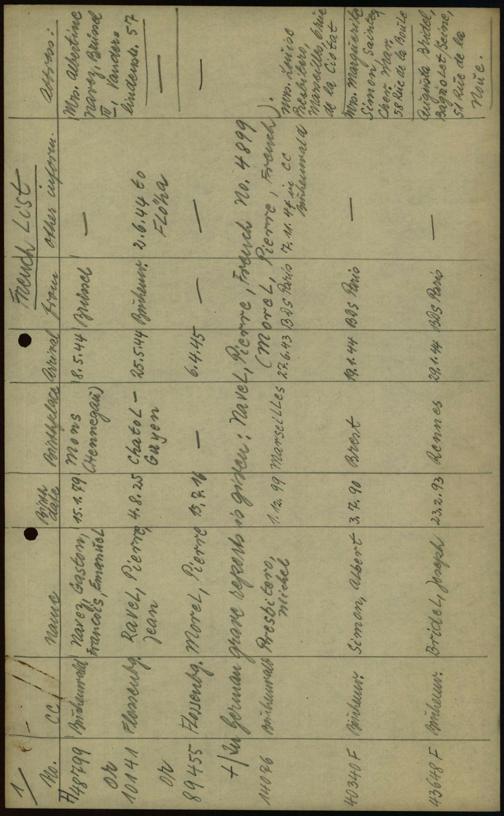 1/
French List
No. CC Name Birth date Birthplace Arrival from other inform. Address:
+/48799 Buchenwald Navez, Gaston, François, Emanuel 15.1.79 Mons (Hennegau) 8.5.44 Brüssel — Mrs. Albertine Navez, Brüssel II, Vanderlindenstr. 57
or
10141 Flossenbg. Ravel, Pierre, Jean 4.8.25 Chatol-Guyon 25.5.44 Buchenw. 2.6.44 to Flöha —
or
89455 Flossenbg. Morel, Pierre 13.7.16 — 6.4.45 — — —
+/ In German grave reports is given: Navel, Pierre, French No. 4899
(Morel, Pierre, French).
14086 Buchenwald Presbitero, Michel 1.12.99 Marseilles 27.6.43 BDS Paris 7.11.44 in CC Buchenwald Mrs. Louise Presbitero, Marseilles, 6 rue de la Ciotat
40340 F Buchenw. Simon, Albert 3.7.90 Brest 19.1.44 BDS Paris — Mrs. Marguerite Simon, Saintes, Cher. Mar. 58 Rue de la Boule
43648 F Buchenw. Bridel, Joseph 23.2.93 Rennes 29.1.44 BDS Paris — Augusta Bridel, Bagnolet Seine, 51 Rue de la Noue.